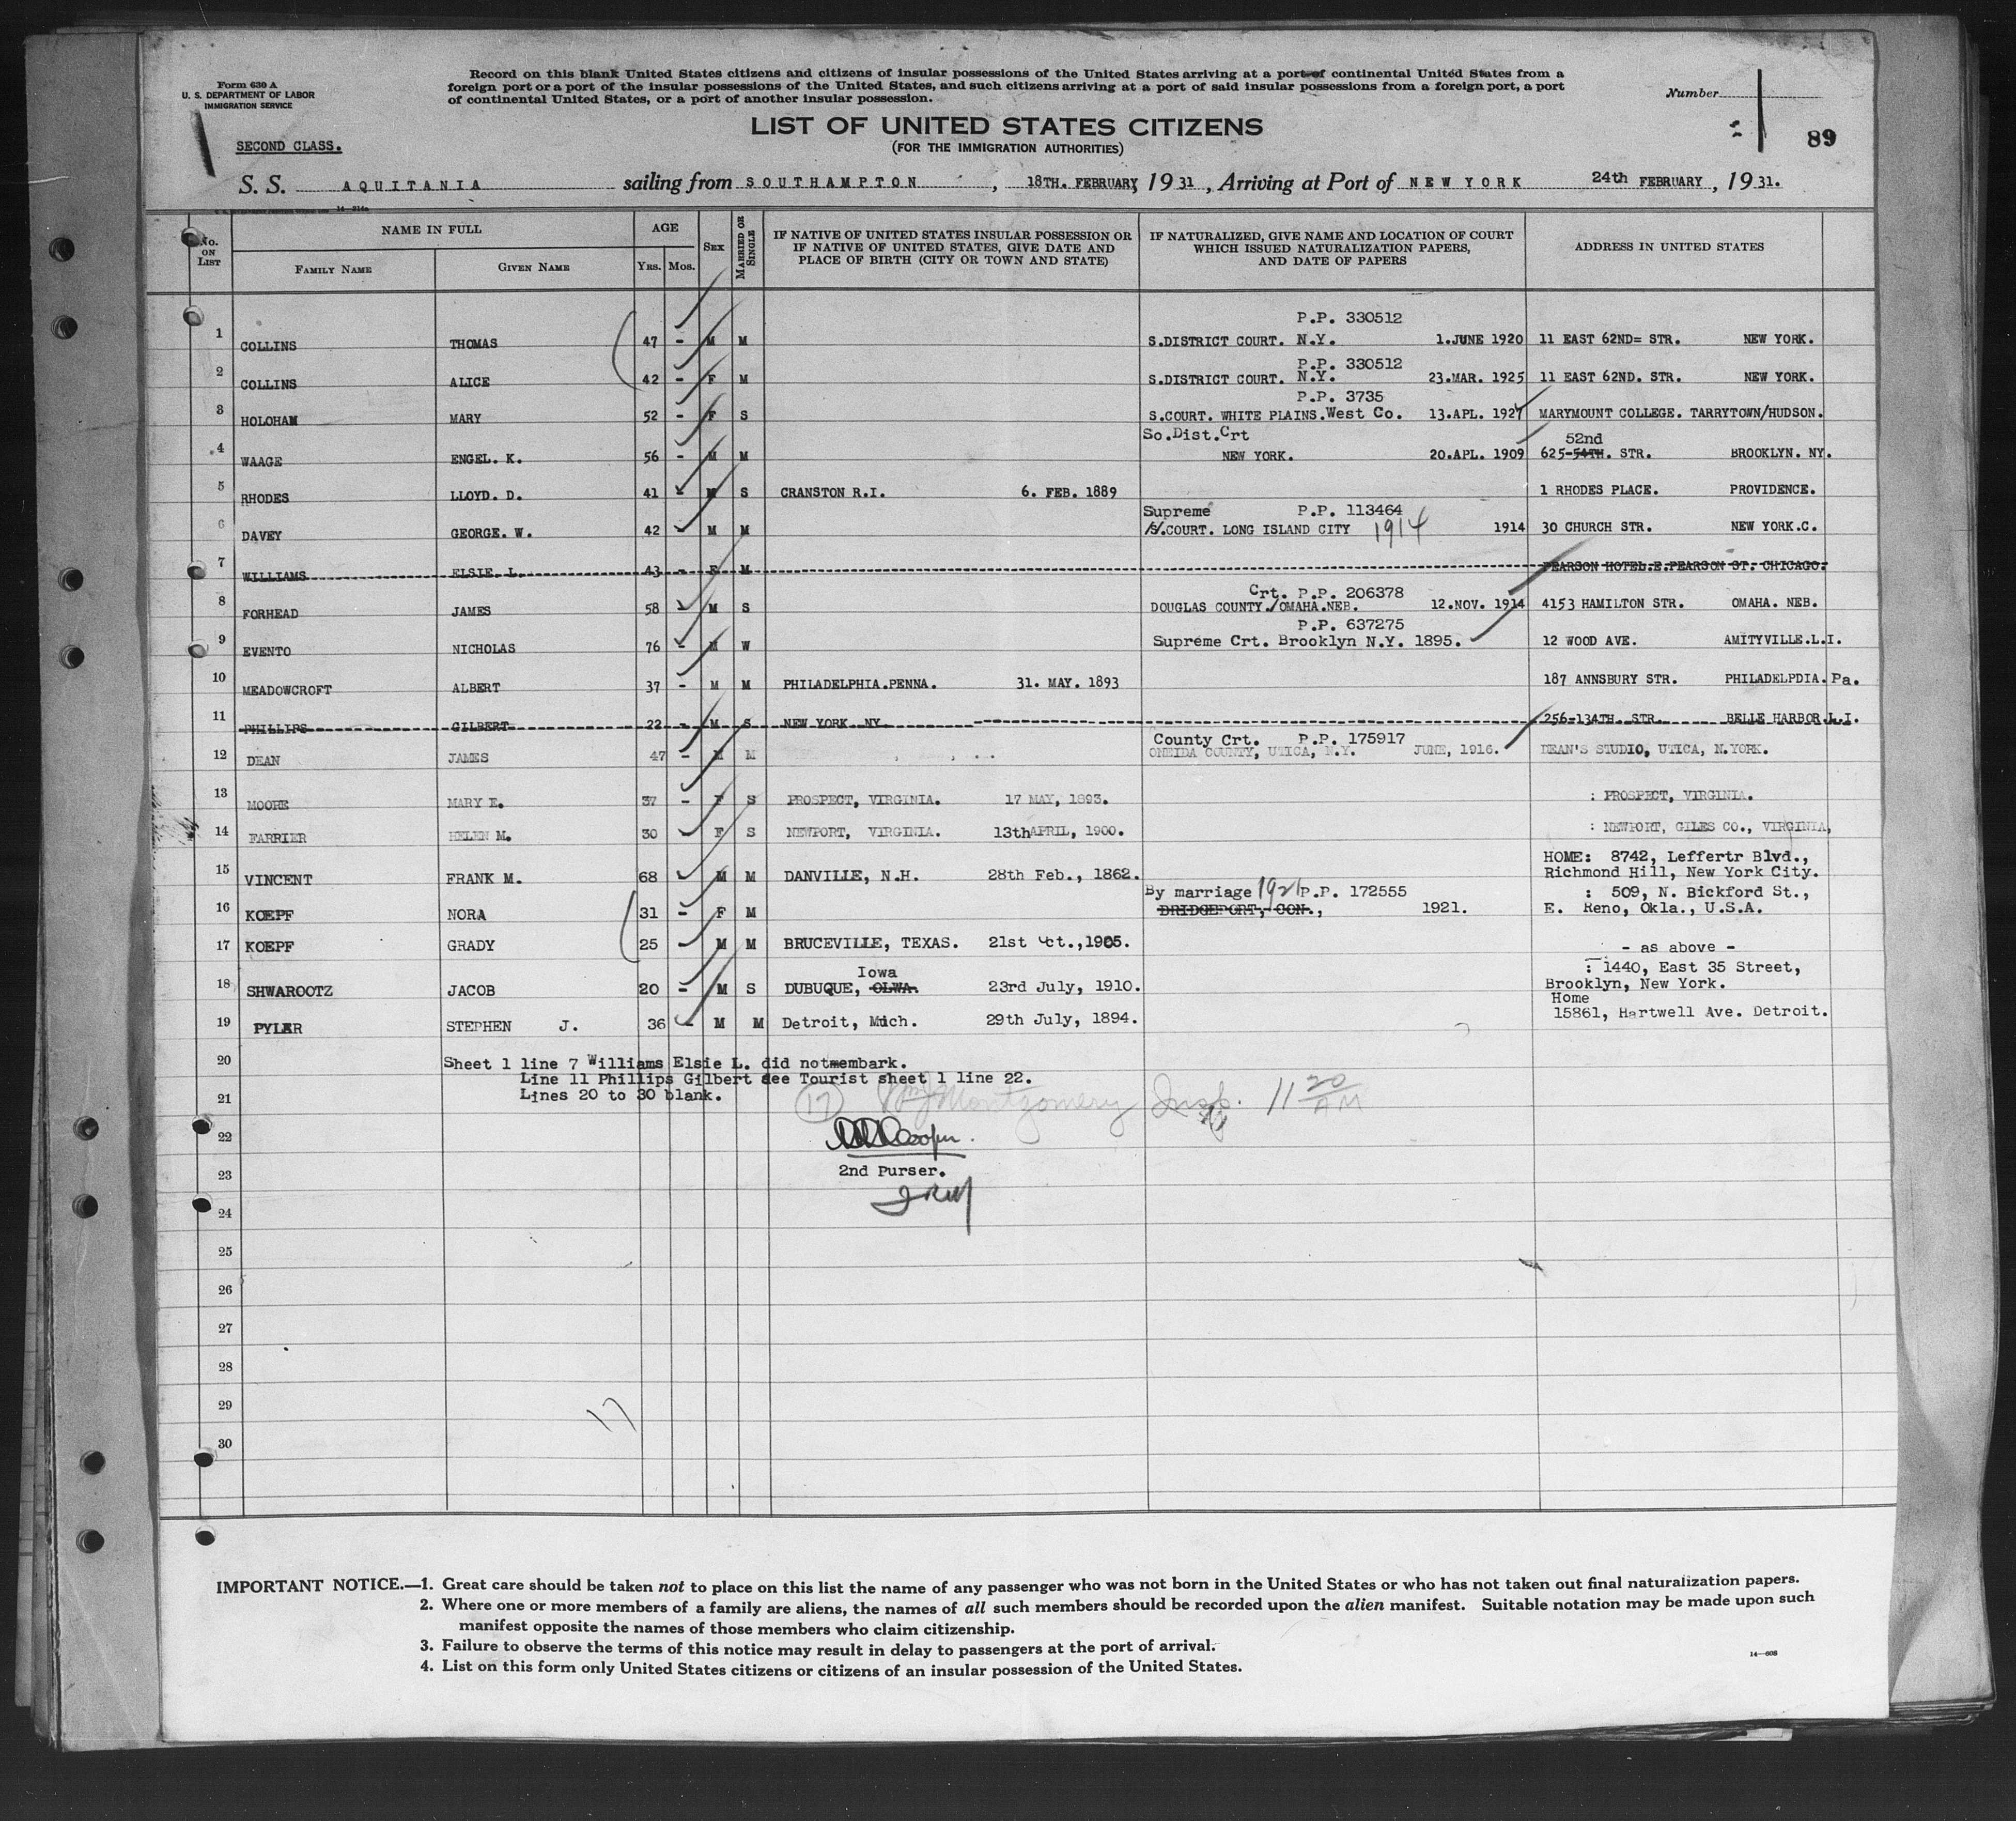 Form 630 A
U. S. DEPARTMENT OF LABOR
IMMIGRATION SERVICE
Record on this blank United States citizens and citizens of insular possessions of the United States arriving at a port of continental United States from a
foreign port or a port of the insular possessions of the United States, and such citizens arriving at a port of said insular possessions from a foreign port, a port
of continental United States, or a port of another insular possession.
Number
LIST OF UNITED STATES CITIZENS
(FOR THE IMMIGRATION AUTHORITIES)
89
SECOND CLASS.
S. S. AQUITANIA sailing from SOUTHAMPTON, 18TH. FEBRUARY, 1931, Arriving at Port of NEW YORK 24th FEBRUARY, 1931.
No. ON LIST
NAME IN FULL
FAMILY NAME GIVEN NAME
AGE
YRS. MOS.
SEX
MARRIED OR SINGLE
IF NATIVE OF UNITED STATES INSULAR POSSESSION OR
IF NATIVE OF UNITED STATES, GIVE DATE AND
PLACE OF BIRTH (CITY OR TOWN AND STATE)
IF NATURALIZED, GIVE NAME AND LOCATION OF COURT
WHICH ISSUED NATURALIZATION PAPERS,
AND DATE OF PAPERS
ADDRESS IN UNITED STATES
P.P. 330512
1 COLLINS THOMAS 47 - M M S.DISTRICT COURT. N.Y. 1.JUNE 1920 11 EAST 62ND= STR. NEW YORK.
P.P. 330512
2 COLLINS ALICE 42 - F M S.DISTRICT COURT. N.Y. 23.MAR. 1925 11 EAST 62ND. STR. NEW YORK.
P.P. 3735
3 HOLOHAN MARY 52 - F S S.COURT. WHITE PLAINS.West Co. 13.APL. 1927 MARYMOUNT COLLEGE. TARRYTOWN/HUDSON.
So.Dist.Crt 52nd
4 WAAGE ENGEL. K. 56 - M M NEW YORK. 20.APL. 1909 625-54TH. STR. BROOKLYN. NY.
5 RHODES LLOYD. D. 41 - M S CRANSTON R.I. 6. FEB. 1889 1 RHODES PLACE. PROVIDENCE.
Supreme P.P. 113464
6 DAVEY GEORGE. W. 42 M M COURT. LONG ISLAND CITY 1914 1914 30 CHURCH STR. NEW YORK.C.
7 WILLIAMS ELSIE. L. 43 - F M PEARSON HOTEL.E.PEARSON ST. CHICAGO.
Crt. P.P. 206378
8 FORHEAD JAMES 58 M S DOUGLAS COUNTY./OMAHA.NEB. 12.NOV. 1914 4153 HAMILTON STR. OMAHA. NEB.
P.P. 637275
9 EVENTO NICHOLAS 76 - M W Supreme Crt. Brooklyn N.Y. 1895. 12 WOOD AVE. AMITYVILLE.L.I.
10 MEADOWCROFT ALBERT 37 - M M PHILADELPHIA.PENNA. 31. MAY. 1893 187 ANNSBURY STR. PHILADELPDIA. Pa.
11 PHILLIPS GILBERT 22 - M S NEW YORK NY 256-134TH. STR. BELLE HARBOR.L.I.
County Crt. P.P. 175917
12 DEAN JAMES 47 - M M ONEIDA COUNTY, UTICA, N.Y. JUNE, 1916. DEAN'S STUDIO, UTICA, N.YORK.
13 MOORE MARY E. 37 - F S PROSPECT, VIRGINIA. 17 MAY, 1893. : PROSPECT, VIRGINIA.
14 FARRIER HELEN M. 30 F S NEWPORT, VIRGINIA. 13thAPRIL, 1900. : NEWPORT, GILES CO., VIRGINIA,
HOME: 8742, Leffertr Blvd.,
15 VINCENT FRANK M. 68 M M DANVILLE, N.H. 28th Feb., 1862. Richmond Hill, New York City.
By marriage 1921 P.P. 172555 : 509, N. Bickford St.,
16 KOEPF NORA 31 - F M BRIDGEPORT, CON., 1921. E. Reno, Okla., U.S.A.
17 KOEPF GRADY 25 - M M BRUCEVILLE, TEXAS. 21st Oct.,1905. - as above -
Iowa : 1440, East 35 Street,
18 SHWAROOTZ JACOB 20 - M S DUBUQUE, OLWA. 23rd July, 1910. Brooklyn, New York.
Home
19 PYLER STEPHEN J. 36 - M M Detroit, Mich. 29th July, 1894. 15861, Hartwell Ave. Detroit.
20 Sheet 1 line 7 Williams Elsie L. did notmembark.
Line 11 Phillips Gilbert see Tourist sheet 1 line 22.
21 Lines 20 to 30 blank.
17 Montgomery Insp. 11 20 AM
22
2nd Purser.
23
24
25
26
27
28
29
17
30
IMPORTANT NOTICE.—1. Great care should be taken not to place on this list the name of any passenger who was not born in the United States or who has not taken out final naturalization papers.
2. Where one or more members of a family are aliens, the names of all such members should be recorded upon the alien manifest. Suitable notation may be made upon such
manifest opposite the names of those members who claim citizenship.
3. Failure to observe the terms of this notice may result in delay to passengers at the port of arrival.
4. List on this form only United States citizens or citizens of an insular possession of the United States.
14—608